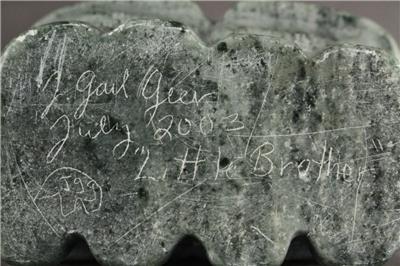 J. Gail Geer
July 2003
"Little Brother"